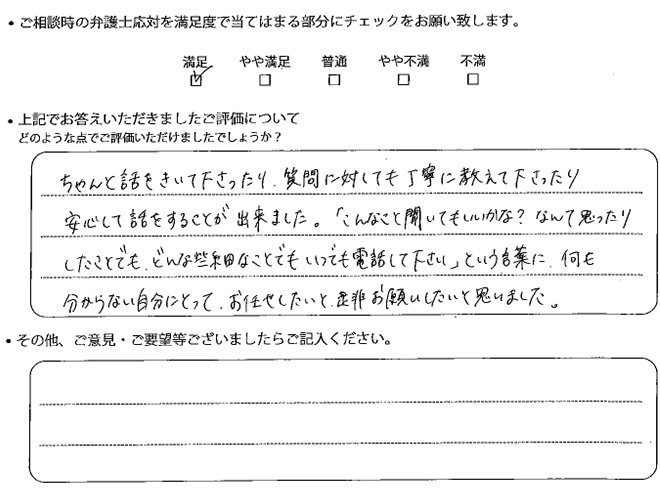 • ご相談時の弁護士応対を満足度で当てはまる部分にチェックをお願い致します。
満足 やや満足 普通 やや不満 不満
☑ □ □ □ □
• 上記でお答えいただきましたご評価について
どのような点でご評価いただけましたでしょうか?
ちゃんと話をきいて下さったり、質問に対しても丁寧に教えて下さったり
安心して話をすることが出来ました。「こんなこと聞いてもいいかな?なんて思ったり
したことでも、どんな些細なことでもいつでも電話して下さい」という言葉に、何も
分からない自分にとって、お任せしたいと、是非お願いしたいと思いました。
• その他、ご意見・ご要望等ございましたらご記入ください。